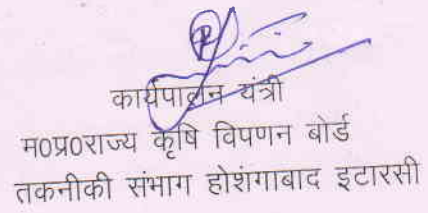 कार्यपालन यंत्री
म0प्र0राज्य कृषि विपणन बोर्ड
तकनीकी संभाग होशंगाबाद इटारसी